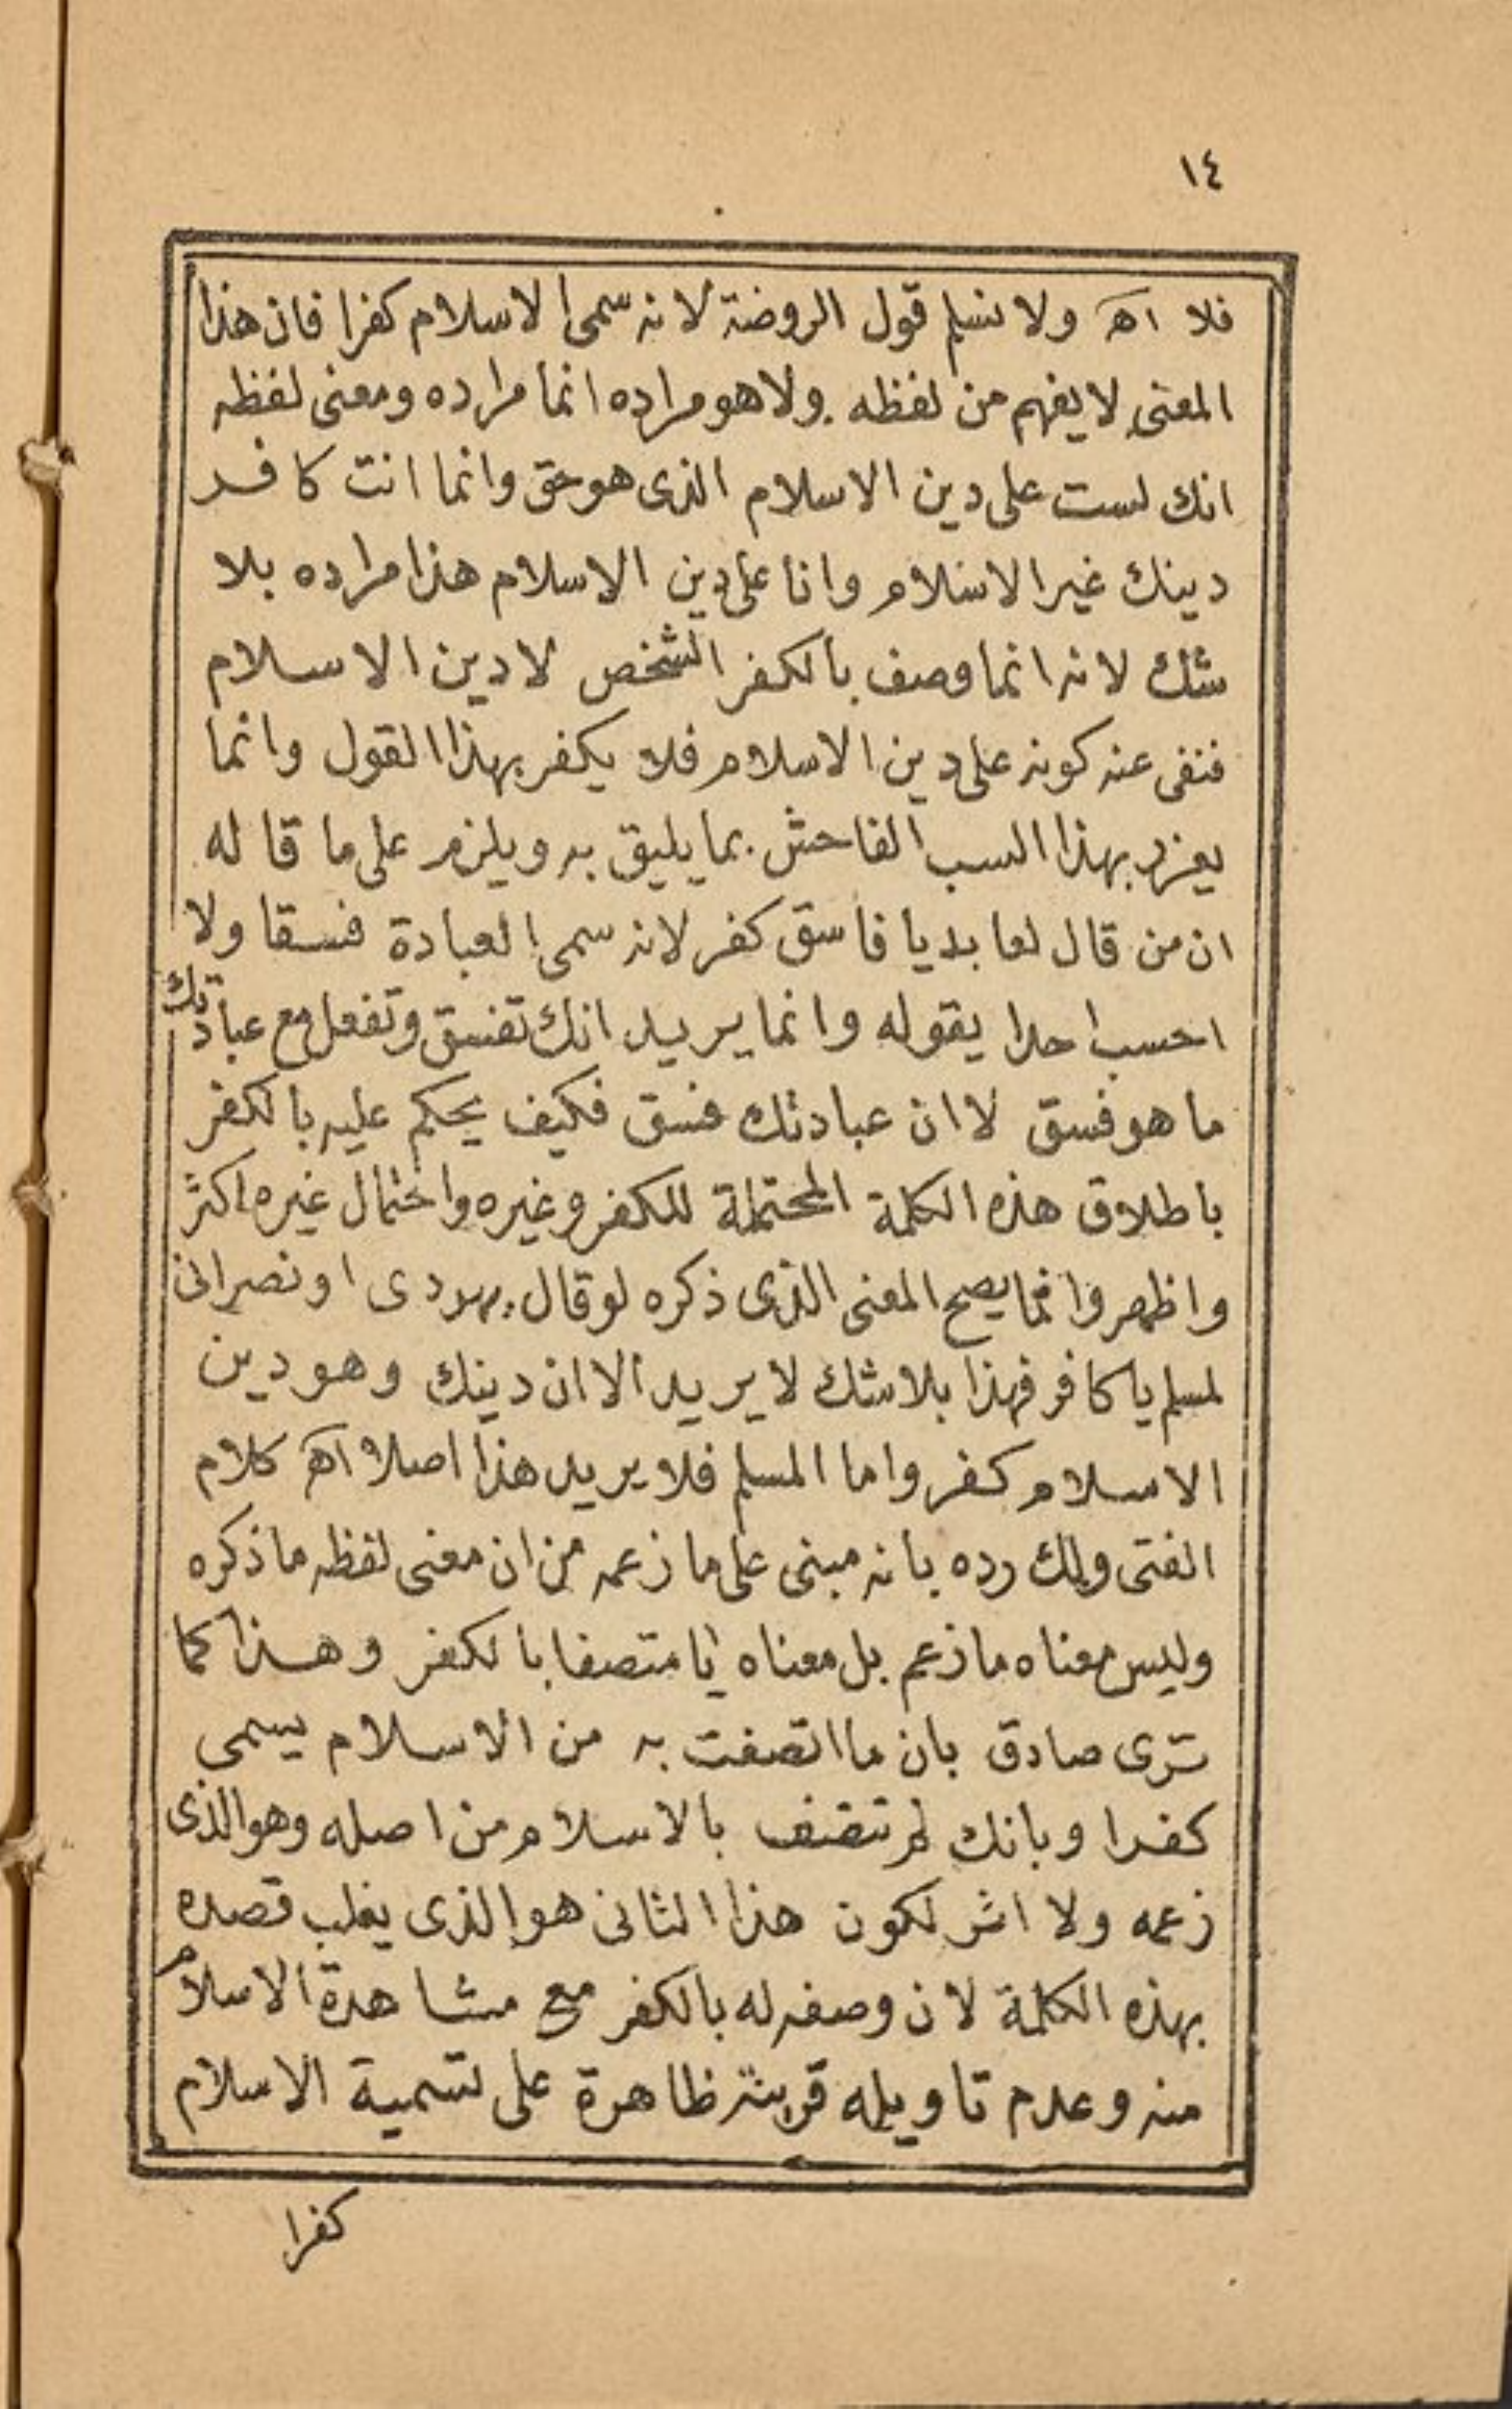 ١٤
فلا اهـ ولا نسلم قول الروضة لانه سمى الاسلام كفرا فان هذا
المعنى لا يفهم من لفظه ولا هو مراده انما مراده ومعنى لفظه
انك لست على دين الاسلام الذى هو حق وانما انت كافر
دينك غير الاسلام وانا على دين الاسلام هذا مراده بلا
شك لانه انما وصف بالكفر الشخص لا دين الاسلام
فنفى عنه كونه على دين الاسلام فلا يكفر بهذا القول وانما
يعزر بهذا السب الفاحش بما يليق به ويلزم على ما قاله
ان من قال لعابد يا فاسق كفر لانه سمى العبادة فسقا ولا
احسب احدا يقوله وانما يريد انك تفسق وتفعل مع عبادتك
ما هو فسق لا ان عبادتك فسق فكيف يحكم عليه بالكفر
باطلاق هذه الكلمة المحتملة للكفر وغيره واحتمال غيره اكثر
واظهر وانما يصح المعنى الذى ذكره لو قال يهودى او نصرانى
لمسلم يا كافر فهذا بلا شك لا يريد الا ان دينك وهو دين
الاسلام كفر واما المسلم فلا يريد هذا اصلا اهـ كلام
الفتى ولك رده بانه مبنى على ما زعمه من ان معنى لفظه ما ذكره
وليس معناه ما زعم بل معناه يا متصفا بالكفر وهذا كما
ترى صادق بان ما اتصفت به من الاسلام يسمى
كفرا وبانك لم تتصف بالاسلام من اصله وهو الذى
زعمه ولا اثر لكون هذا الثانى هو الذى يغلب قصده
بهذه الكلمة لان وصفه له بالكفر مع مشاهدة الاسلام
منه وعدم تاويله قرينة ظاهرة على تسمية الاسلام
كفرا